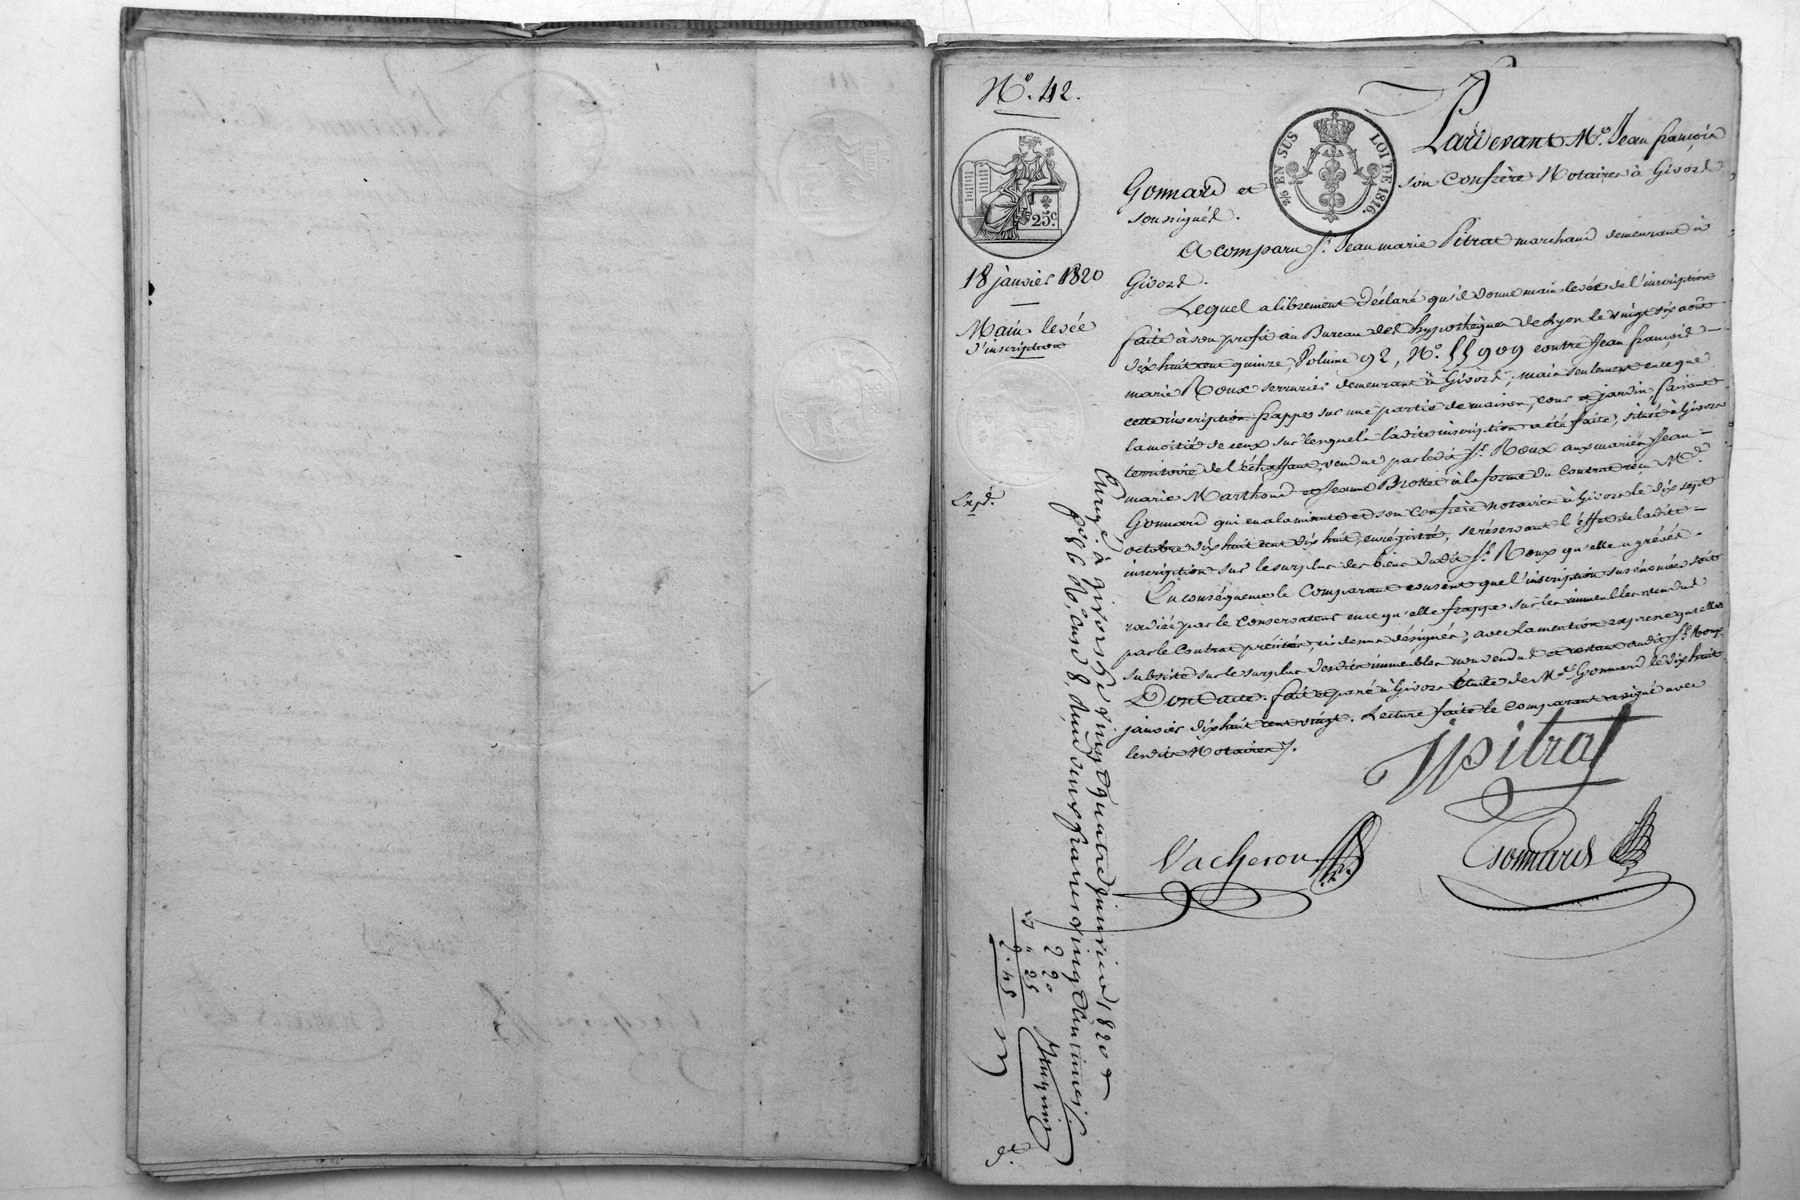 N.o 42.
25.c
18 janvier 1820
Main-levée
d'inscription
Exp.é
2/6 EN SUS
LOI DE 1816.
Pardevant M.e Jean françois
Gonnard et son Confrère Notaires à Givors
soussignés.
A comparu S.r Jean marie Pitrat marchand demeurant à
Givors.
Lequel a librement déclaré qu'il donne main levée de l'inscription
faite à son profit au Bureau des hypothèques de Lyon le vingt six août
dix huit cent quinze, Volume 92, N.o 55909 contre Jean françois
marie Roux serrurier demeurant à Givors; mais seulement en ce que
cette inscription frappe sur une partie de maison, cour et jardin, faisant
la moitié de ceux sur lesquels ladite inscription a été faite, situés à Givors
territoire de l'échaffaut, vendue par ledit S.r Roux aux mariés Jean
marie Marthoud et Jeanne Brottet à la forme du Contrat reçu M.e
Gonnard qui en a la minute et son confrère notaires à Givors le dix sept
octobre dix huit cent dix huit, enregistré, se réservant l'effet de ladite
inscription sur le surplus des biens dudit S.r Roux qu'elle a grévés.
En conséquence le Comparant consent que l'inscription sus énoncée soit
radiée par le Conservateur en ce qu'elle frappe sur les immeubles vendus
par le Contrat précité, ci dessus désignés, avec la mention expresse qu'elle
subsiste sur le surplus desdits immeubles non vendus et restant audit S.r Roux
Dont acte. fait et passé à Givors Etude de M.e Gonnard le dix huit
janvier dix huit cent vingt. Lecture faite le Comparant a signé avec
lesdits Notaires.
jpitrat
Vacheron
Gonnard
Enreg.é à givors le vingt quatre janvier 1820
f.o 86 R.o, case 8, Reçu deux francs vingt centimes.
2 20
25
2.45